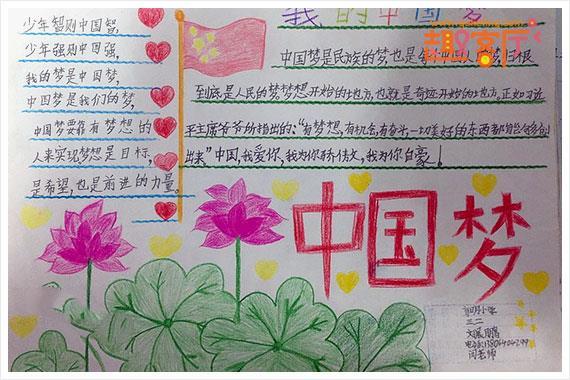 少年智则中国智,
少年强则中国强,
我的梦是中国梦,
中国梦是我们的梦,
中国梦要靠有梦想的
人来实现梦想是目标,
是希望,也是前进的力量。
我的中国梦
趣客厅
中国梦是民族的梦,也是每
到底是人民的梦,梦想开始的地方,也就是奇迹开始的地方。正如习近
平主席爷爷所指出的:"有梦想,有机会,有奋斗,一切美好的东西都能够创
出来"中国,我爱你,我为你骄傲,我为你自豪!
中国梦
小学
三二
闫老师